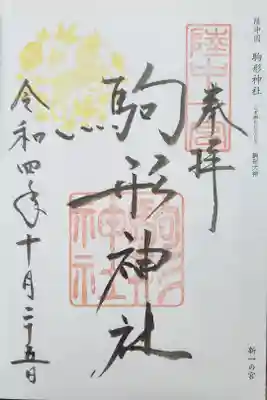 陸中国 駒形神社
陸中一宮
奉拝
駒形神社
駒形神社
令和四年十月二十五日
新一の宮